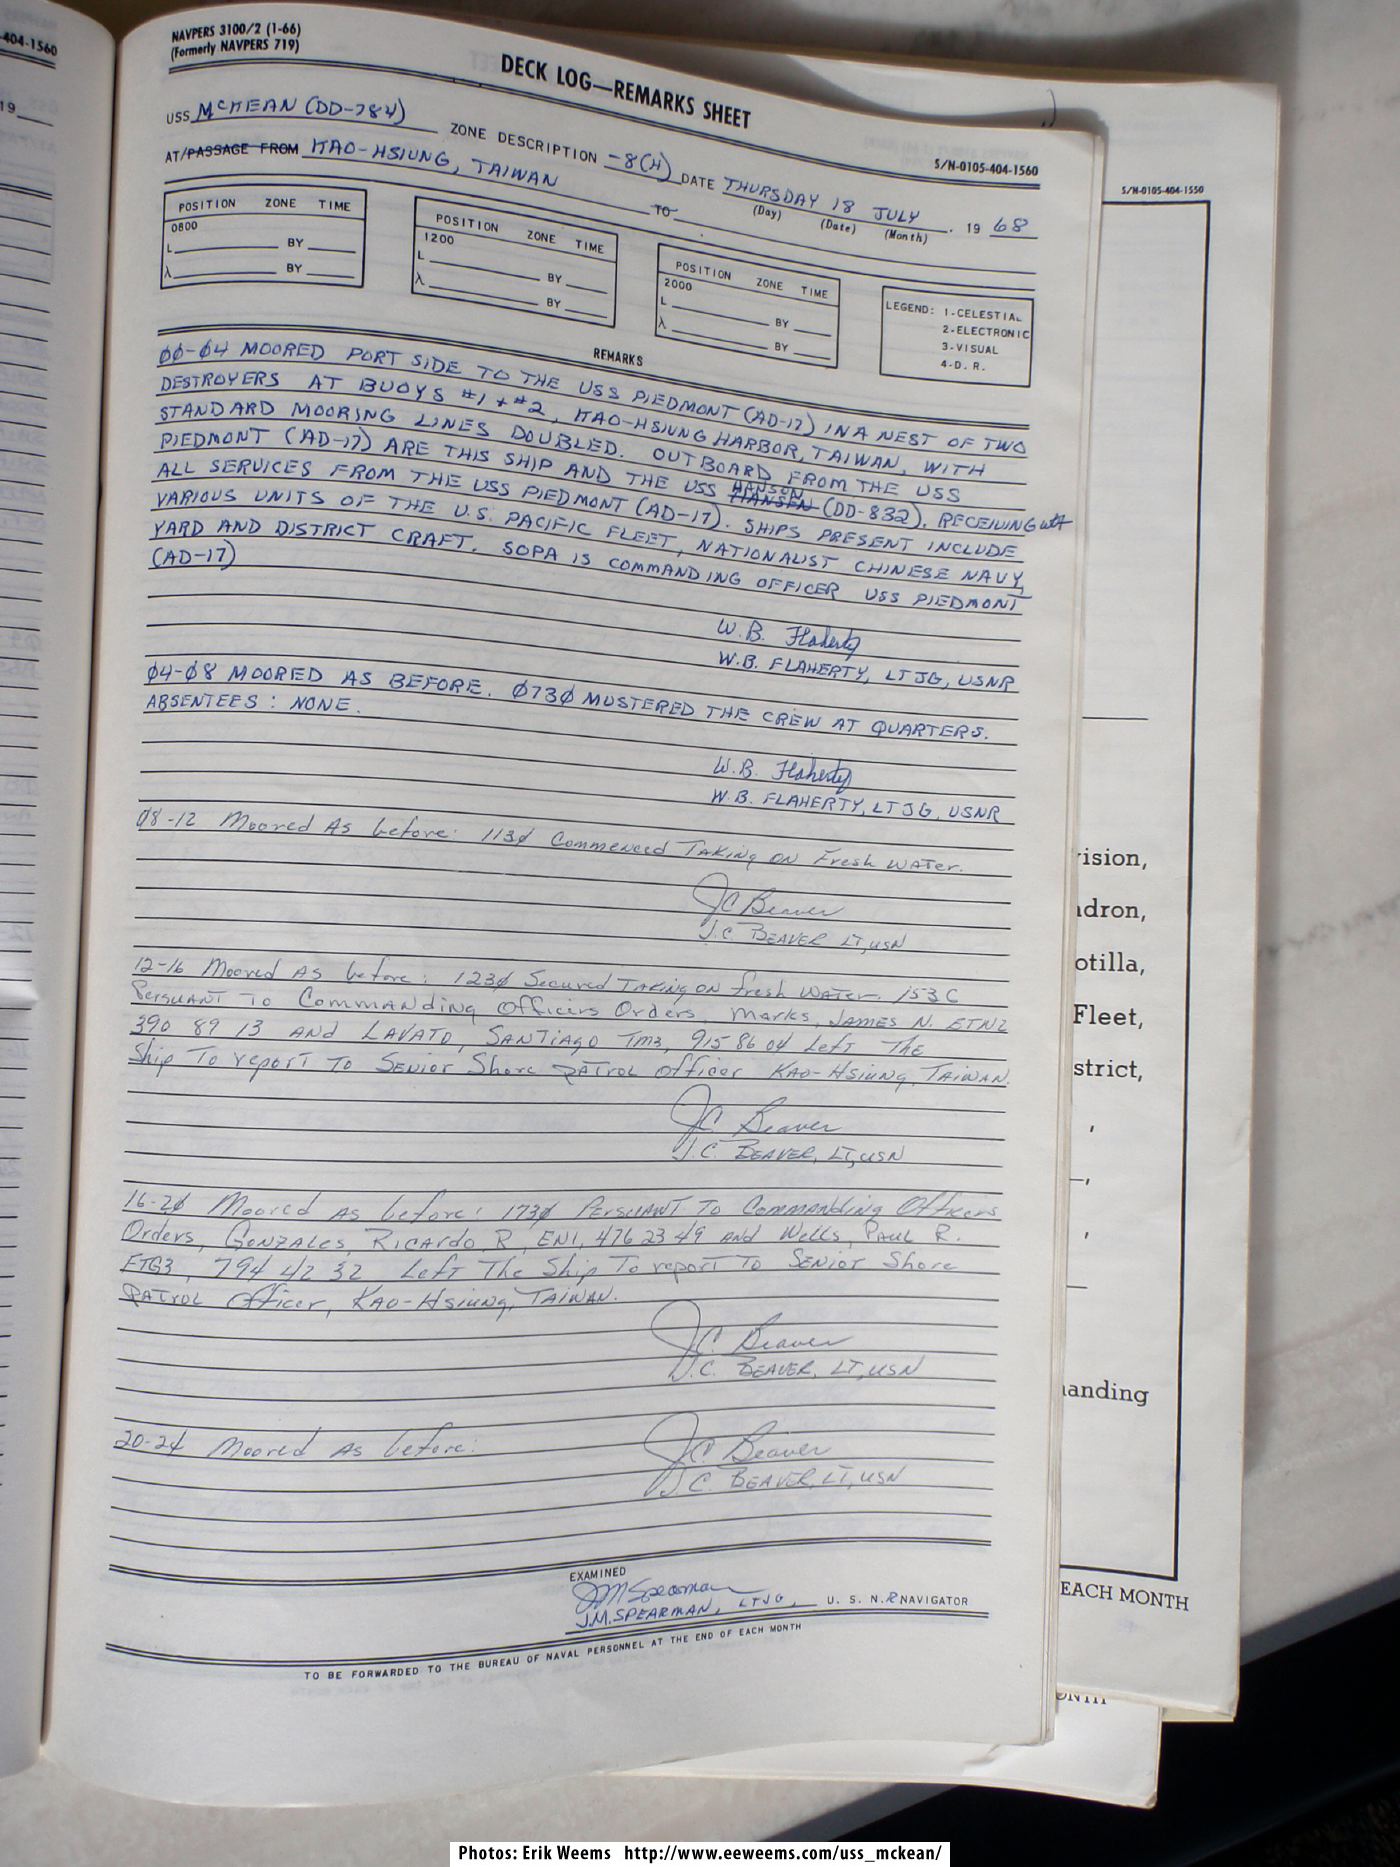 -404-1560
19
NAVPERS 3100/2 (1-66)
(Formerly NAVPERS 719)
DECK LOG—REMARKS SHEET
S/N-0105-404-1560
USS McKEAN (DD-784) ZONE DESCRIPTION -8(H) DATE THURSDAY 18 JULY, 19 68
(Day) (Date) (Month)
AT/PASSAGE FROM KAO-HSIUNG, TAIWAN TO
POSITION ZONE TIME
0800
L BY
λ BY
POSITION ZONE TIME
1200
L BY
λ BY
POSITION ZONE TIME
2000
L BY
λ BY
LEGEND: 1-CELESTIAL
2-ELECTRONIC
3-VISUAL
4-D. R.
REMARKS
00-04 MOORED PORT SIDE TO THE USS PIEDMONT (AD-17) IN A NEST OF TWO
DESTROYERS AT BUOYS #1 + #2, KAO-HSIUNG HARBOR, TAIWAN, WITH
STANDARD MOORING LINES DOUBLED. OUTBOARD FROM THE USS
PIEDMONT (AD-17) ARE THIS SHIP AND THE USS HANSON HANSEN (DD-832). RECEIVING
ALL SERVICES FROM THE USS PIEDMONT (AD-17). SHIPS PRESENT INCLUDE
VARIOUS UNITS OF THE U.S. PACIFIC FLEET, NATIONALIST CHINESE NAVY,
YARD AND DISTRICT CRAFT. SOPA IS COMMANDING OFFICER USS PIEDMONT
(AD-17)
W.B. Flaherty
W.B. FLAHERTY, LTJG, USNR
04-08 MOORED AS BEFORE. 0730 MUSTERED THE CREW AT QUARTERS.
ABSENTEES: NONE.
W.B. Flaherty
W.B. FLAHERTY, LTJG, USNR
08-12 Moored As before: 1130 Commenced Taking on Fresh Water.
JC Beaver
J.C. BEAVER LT, USN
12-16 Moored As before: 1230 Secured Taking on fresh water. 1530
Persuant To Commanding Officers Orders, Marks, James N. ETN2
390 89 13 and LAVATO, SANTIAGO TM3, 915 86 04 Left The
Ship To report To Senior Shore Patrol officer KAO-Hsiung, TAIWAN.
JC Beaver
J.C. BEAVER, LT, USN
16-20 Moored As before: 1730 Persuant To Commanding Officers
Orders, Gonzales, Ricardo R, EN1, 476 23 49 and Wells, Paul R.
FTG3, 794 42 32 Left The Ship To report To Senior Shore
Patrol Officer, KAO-Hsiung, TAIWAN.
JC Beaver
J.C. BEAVER, LT, USN
20-24 Moored As before:
JC Beaver
J.C. BEAVER, LT, USN
EXAMINED
JM Spearman
J.M. SPEARMAN, LTJG, U. S. N.R NAVIGATOR
TO BE FORWARDED TO THE BUREAU OF NAVAL PERSONNEL AT THE END OF EACH MONTH
S/N-0105-404-1550
ision,
dron,
otilla,
Fleet,
strict,
anding
EACH MONTH
Photos: Erik Weems http://www.eeweems.com/uss_mckean/